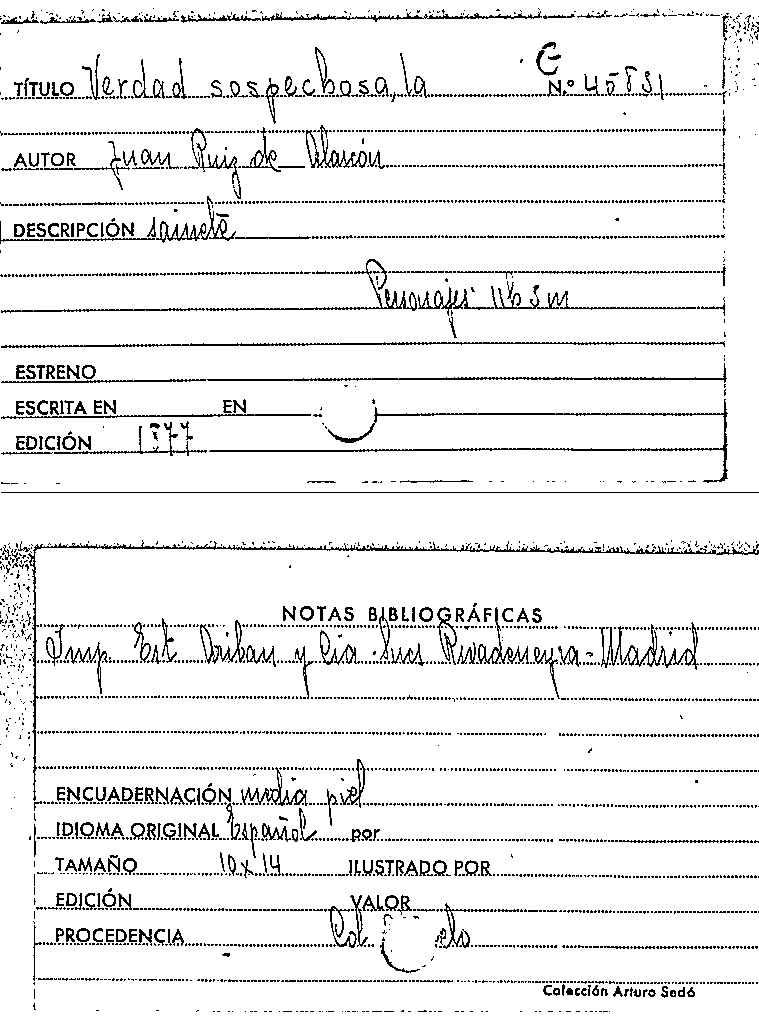 TÍTULO Verdad sospechosa, la
N.º 45831
AUTOR Juan Ruiz de Alarcón
DESCRIPCIÓN sainete
Personajes 11h 5m
ESTRENO
ESCRITA EN EN
EDICIÓN 1877
NOTAS BIBLIOGRÁFICAS
Imp Est y Cia Sucs Rivadeneyra - Madrid
ENCUADERNACIÓN media piel
IDIOMA ORIGINAL Español por
TAMAÑO 10 x 14 ILUSTRADO POR
EDICIÓN VALOR
PROCEDENCIA Col
Colección Arturo Sedó